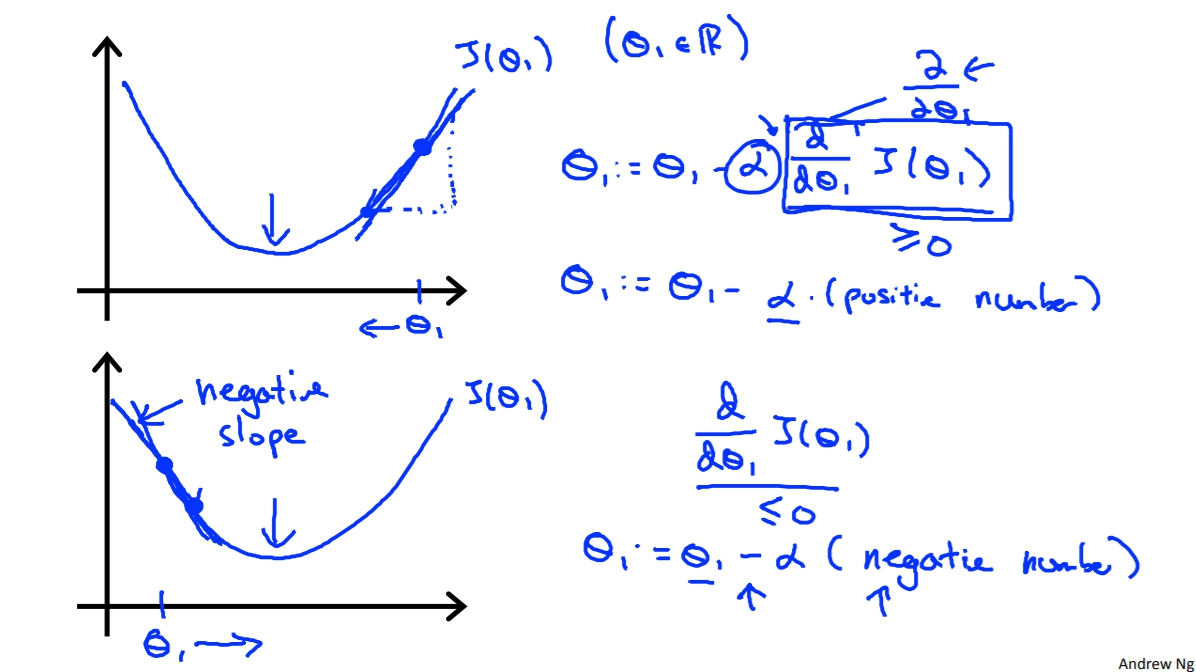 J(θ₁) (θ₁ ∈ ℝ)
∂/∂θ₁
θ₁ := θ₁ - α d/dθ₁ J(θ₁)
≥ 0
θ₁ := θ₁ - α · (positie number)
θ₁
negative
slope
J(θ₁)
d/dθ₁ J(θ₁)
≤ 0
θ₁ := θ₁ - α (negatie number)
θ₁
Andrew Ng